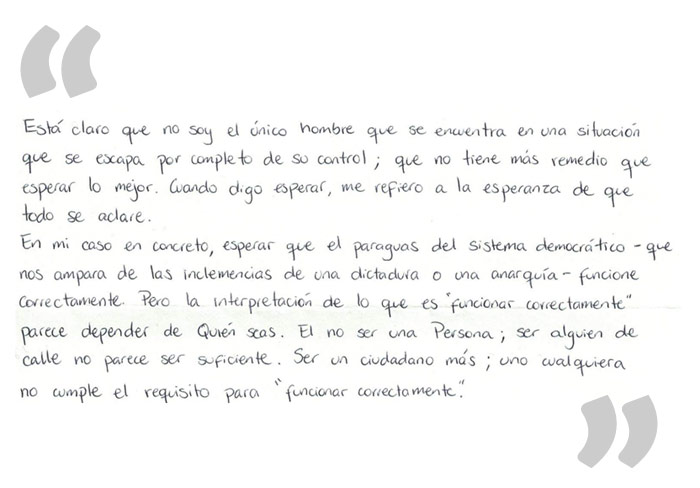 Está claro que no soy el único hombre que se encuentra en una situación
que se escapa por completo de su control; que no tiene más remedio que
esperar lo mejor. Cuando digo esperar, me refiero a la esperanza de que
todo se aclare.
En mi caso en concreto, esperar que el paraguas del sistema democrático - que
nos ampara de las inclemencias de una dictadura o una anarquía - funcione
correctamente. Pero la interpretación de lo que es "funcionar correctamente"
parece depender de Quién seas. El no ser una Persona; ser alguien de
calle no parece ser suficiente. Ser un ciudadano más; uno cualquiera
no cumple el requisito para "funcionar correctamente".